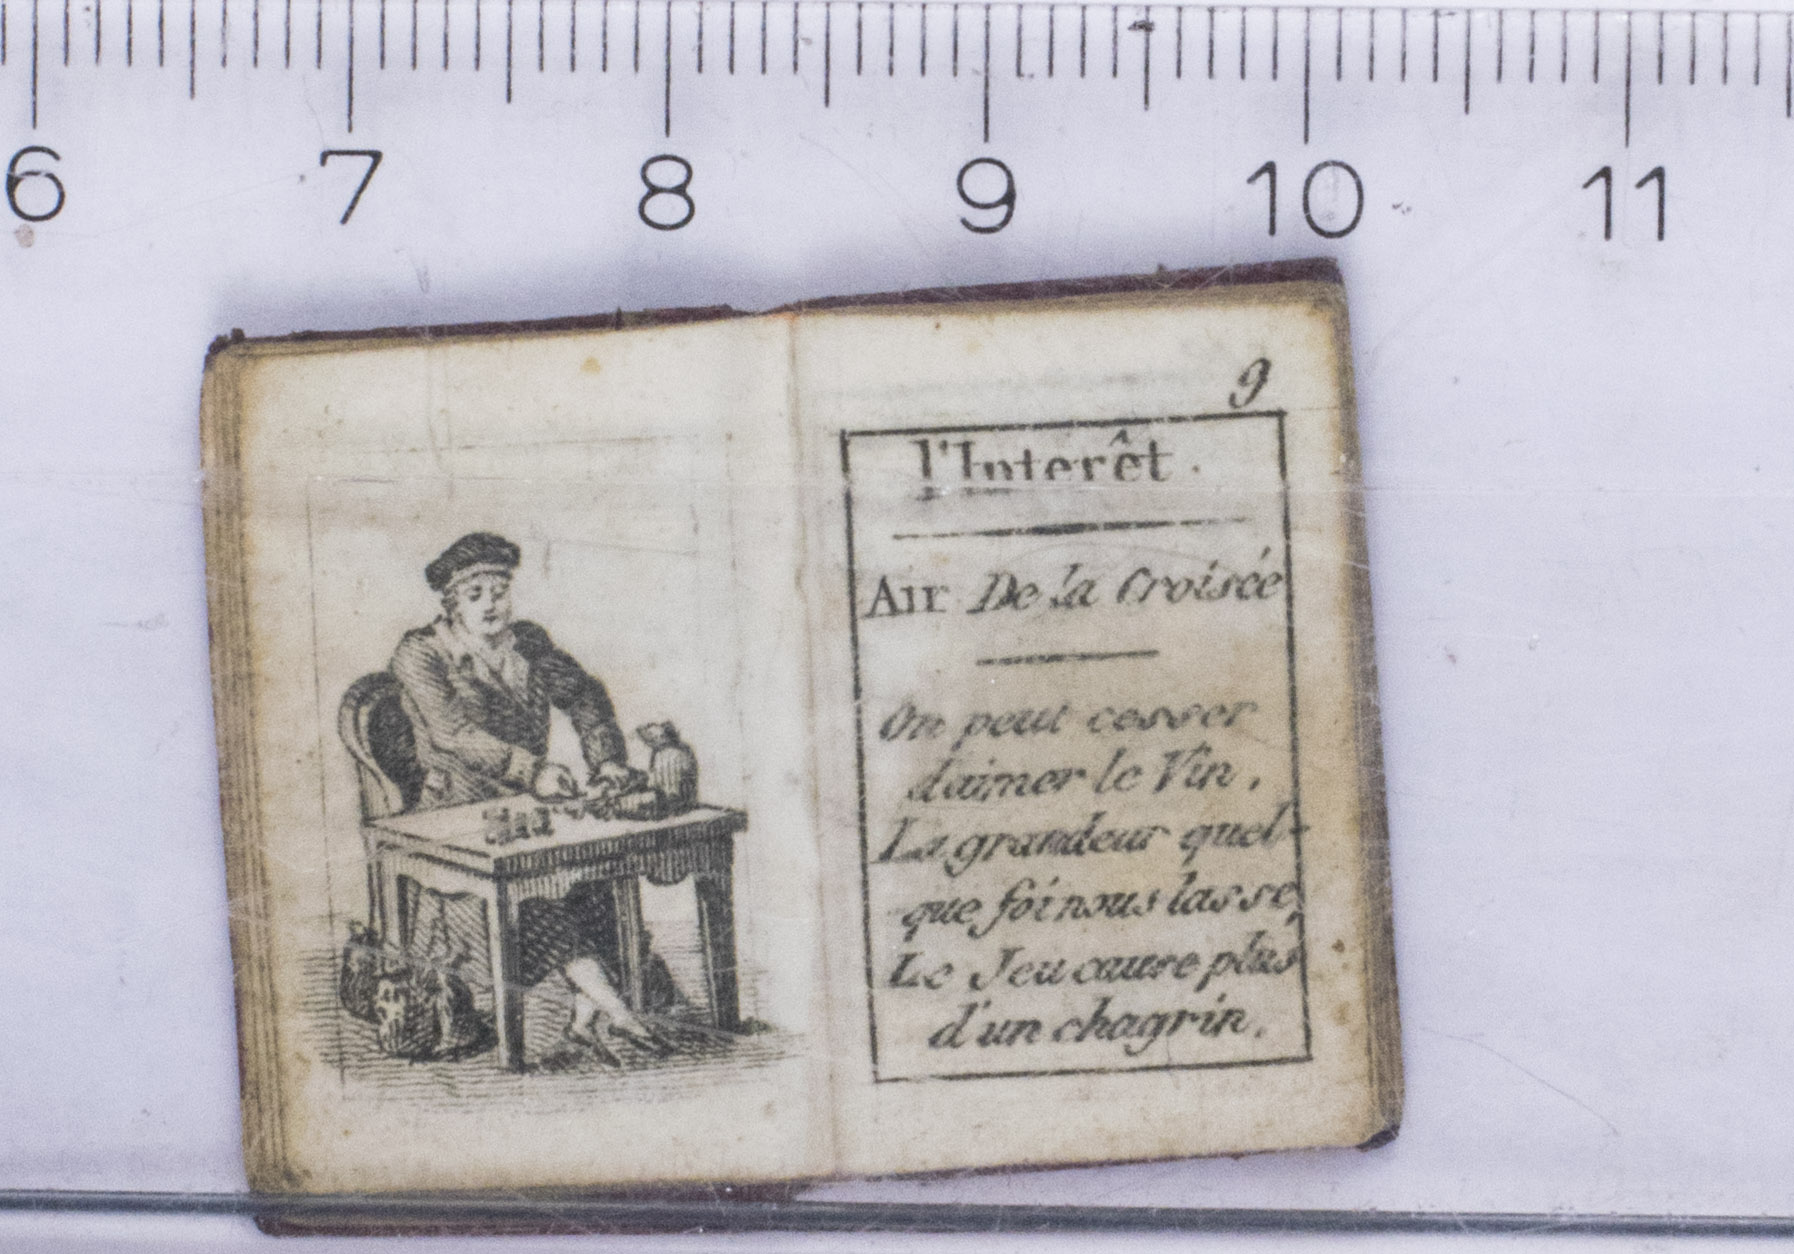 6 7 8 9 10 11
9
l'Interêt.
Air De la Croisée
On peut cesser
d'aimer le Vin,
La grandeur quel-
que foi nous lasse,
Le Jeu cause plus
d'un chagrin,